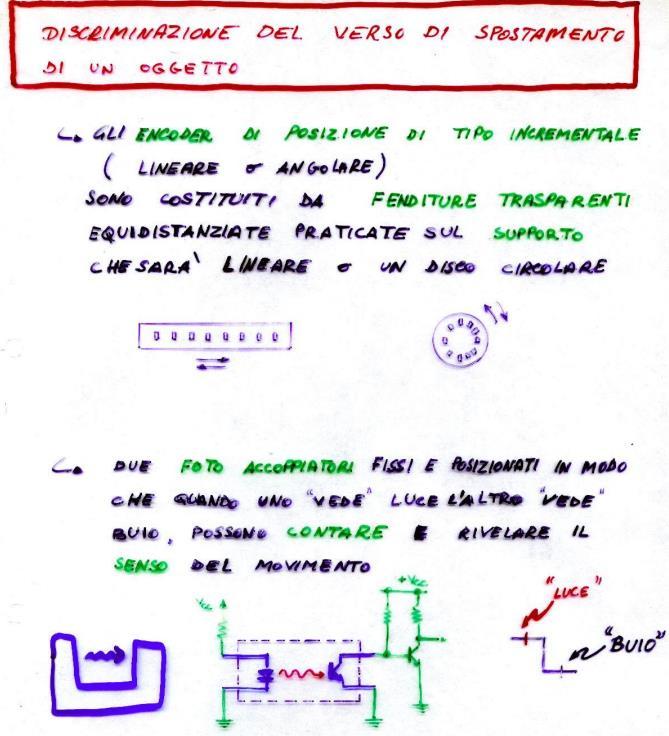 DISCRIMINAZIONE DEL VERSO DI SPOSTAMENTO
DI UN OGGETTO
GLI ENCODER DI POSIZIONE DI TIPO INCREMENTALE
( LINEARE o ANGOLARE)
SONO COSTITUITI DA FENDITURE TRASPARENTI
EQUIDISTANZIATE PRATICATE SUL SUPPORTO
CHE SARA' LINEARE o UN DISCO CIRCOLARE
DUE FOTO ACCOPPIATORI FISSI E POSIZIONATI IN MODO
CHE QUANDO UNO "VEDE" LUCE L'ALTRO "VEDE"
BUIO, POSSONO CONTARE E RIVELARE IL
SENSO DEL MOVIMENTO
Vcc
+Vcc
"LUCE"
"BUIO"